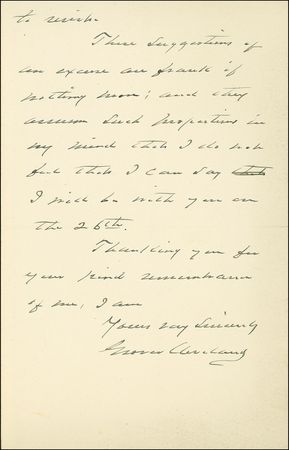 to wish.
These suggestions of
an excuse are frank if
nothing more; and they
assume such proportions in
my mind that I do not
feel that I can say
I will be with you on
the 26th.
Thanking you for
your kind remembrance
of me, I am
Yours very sincerely
Grover Cleveland